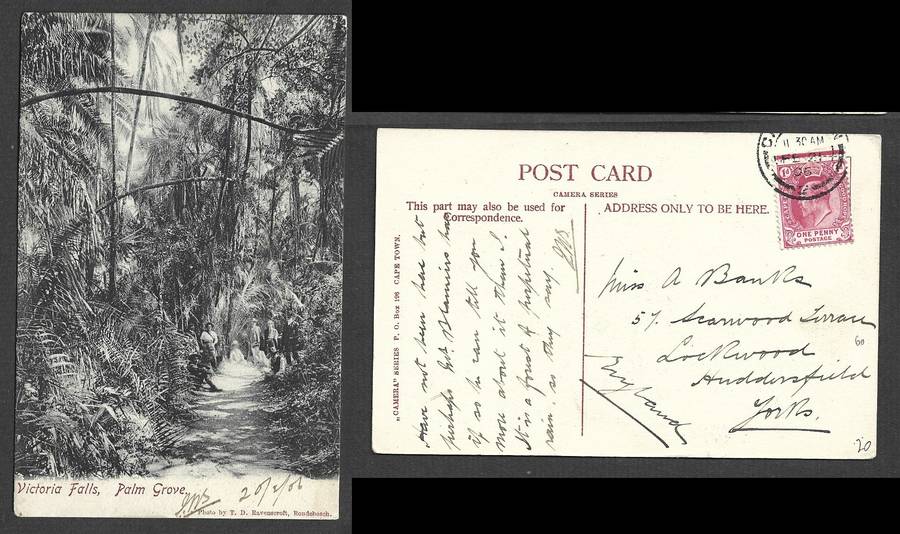 Victoria Falls, Palm Grove.
20/2/06
Photo by T. D. Ravenscroft, Rondebosch.
POST CARD
CAMERA SERIES
This part may also be used for
Correspondence.
ADDRESS ONLY TO BE HERE.
„CAMERA" SERIES P. O. Box 196 CAPE TOWN.
Have not been here but
perhaps has
if so he can tell you
more about it than I.
It is a forest of perpetual
rain. so they say.
11 30 AM
FE 21
06
ONE PENNY
POSTAGE
Miss A Banks
57. Scarwood Terrace
Lockwood
Huddersfield
Yorks.
England
60
20